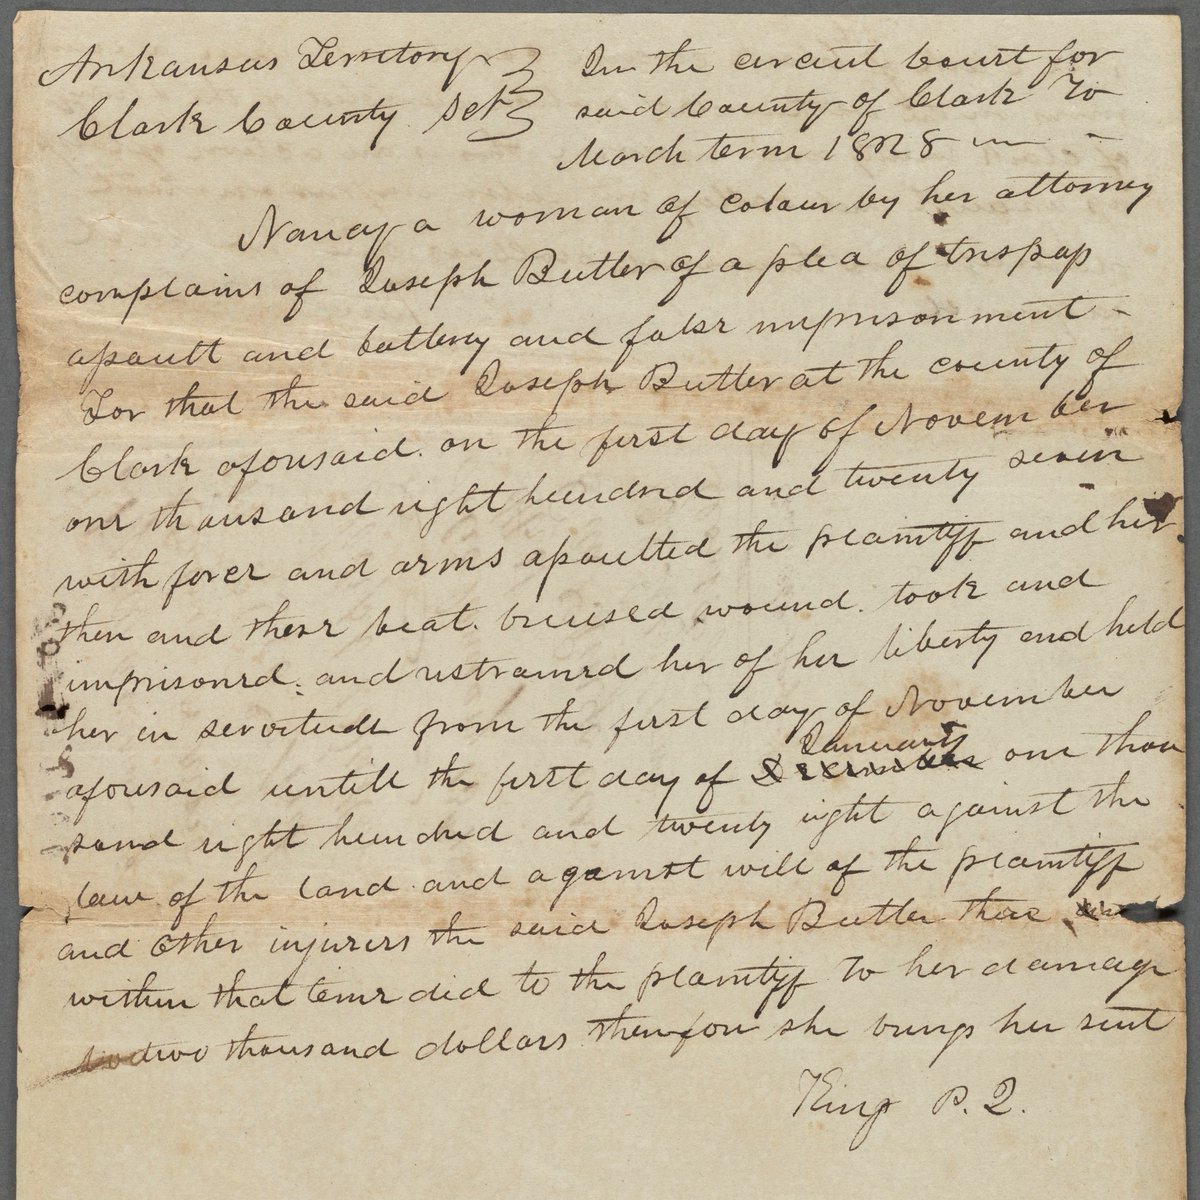 Arkansas Territory
Clark County Sct
In the circuit Court for
said County of Clark To
March term 1828
Nancy a woman of colour by her attorney
complains of Joseph Butler of a plea of trespass
assault and battery and false imprisonment
For that the said Joseph Butler at the county of
Clark aforesaid on the first day of November
one thousand eight hundred and twenty seven
with force and arms assaulted the plaintiff and her
then and there beat. bruised wound. took and
imprisoned. and restrained her of her liberty and held
her in servitude from the first day of November
January
aforesaid untill the first day of one thou
sand eight hundred and twenty eight against the
law of the land and against will of the plaintiff
and other injuries the said Joseph Butler there
within that time did to the plaintiff To her damage
two thousand dollars therefore she brings her suit
King P. Q.